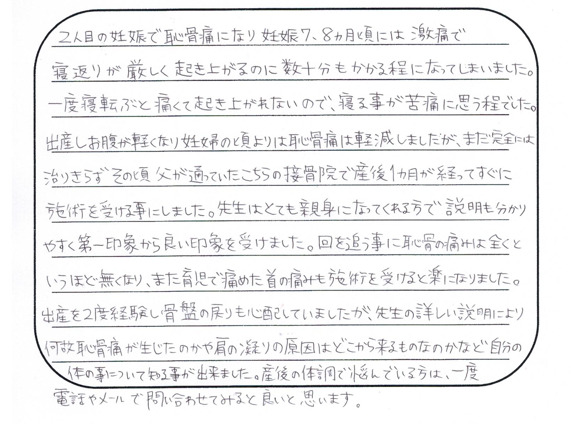 2人目の妊娠で恥骨痛になり妊娠7、8ヵ月頃には激痛で
寝返りが厳しく起き上がるのに数十分もかかる程になってしまいました。
一度寝転ぶと痛くて起き上がれないので、寝る事が苦痛に思う程でした。
出産しお腹が軽くなり妊婦の頃よりは恥骨痛は軽減しましたが、まだ完全には
治りきらずその頃父が通っていたこちらの接骨院で産後1カ月が経ってすぐに
施術を受ける事にしました。先生はとても親身になってくれる方で説明も分かり
やすく第一印象から良い印象を受けました。回を追う事に恥骨の痛みは全くと
いうほど無くなり、また育児で痛めた首の痛みも施術を受けると楽になりました。
出産を2度経験し骨盤の戻りも心配していましたが、先生の詳しい説明により
何故恥骨痛が生じたのかや肩の凝りの原因はどこから来るものなのかなど自分の
体の事について知る事が出来ました。産後の体調で悩んでいる方は、一度
電話やメールで問い合わせてみると良いと思います。